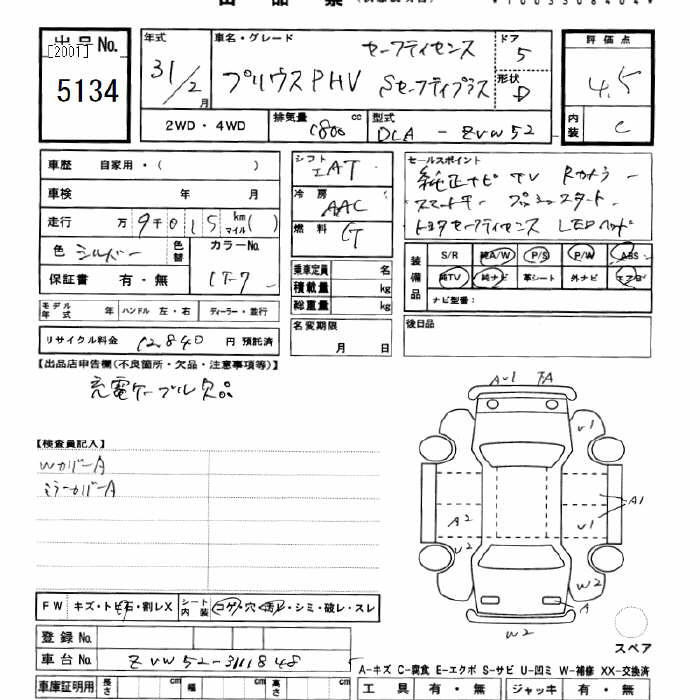 出品票
出品No. [2001] 5134
年式 31/2月
車名・グレード プリウスPHV セーフティセンス Sセーフティプラス
ドア 5
形状 D
評価点 4.5
内装 C
2WD・4WD
排気量 1800 cc
型式 DLA-ZVW52
車歴 自家用・( )
車検 年 月
走行 万9千015 km マイル( )
色 シルバー 色替
カラーNo. 1F7
保証書 有・無
モデル年式 年 ハンドル 左・右 ディーラー・並行
リサイクル料金 12840 円 預託済
シフト IAT
冷房 AAC
燃料 G
乗車定員 名
積載量 kg
総重量 kg
名変期限
月 日
セールスポイント
純正ナビ TV Rカメラ
スマートキー プッシュスタート
トヨタセーフティセンス LEDヘッド
装備品 S/R 純A/W P/S P/W ABS
純TV 純ナビ 革シート 外ナビ エアB
ナビ型番:
後日品
【出品店申告欄(不良箇所・欠品・注意事項等)】
充電ケーブル欠品
【検査員記入】
Wカバー A
ミラーカバー A
AU1 A
U1
A1
A2 U1
U2
W2
A
W2
スペア
FW キズ・トビ石・割レX シート内装 コゲ・穴・汚レ・シミ・破レ・スレ
登録No.
車台No. ZVW52-3111848
車庫証明用 長さ cm 幅 cm 高さ cm
A-キズ C-腐食 E-エクボ S-サビ U-凹ミ W-補修 XX-交換済
工具 有・無 ジャッキ 有・無